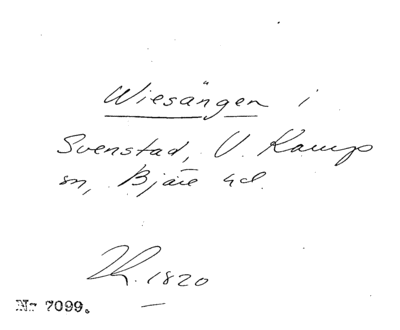 Wiesängen i
Svenstad, V. Karup
sn, Bjäre hd.
Kh. 1820
Nr 7099.